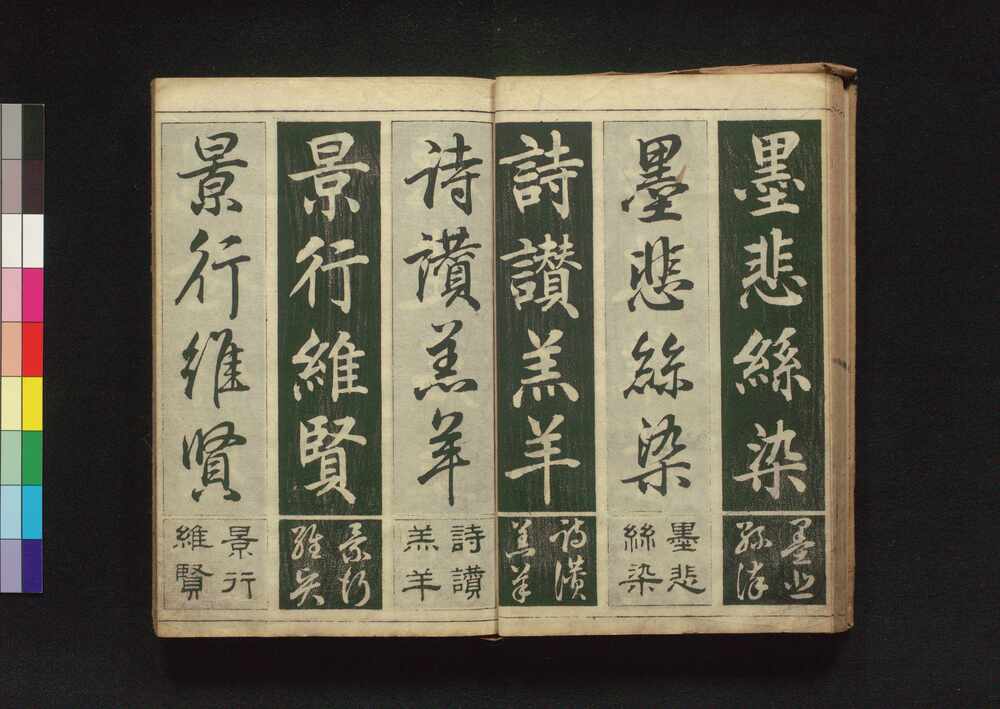 墨悲絲染
墨悲
絲染
墨悲絲染
墨悲
絲染
詩讃羔羊
詩讃
羔羊
诗讃羔羊
詩讃
羔羊
景行維賢
景行
維賢
景行維賢
景行
維賢